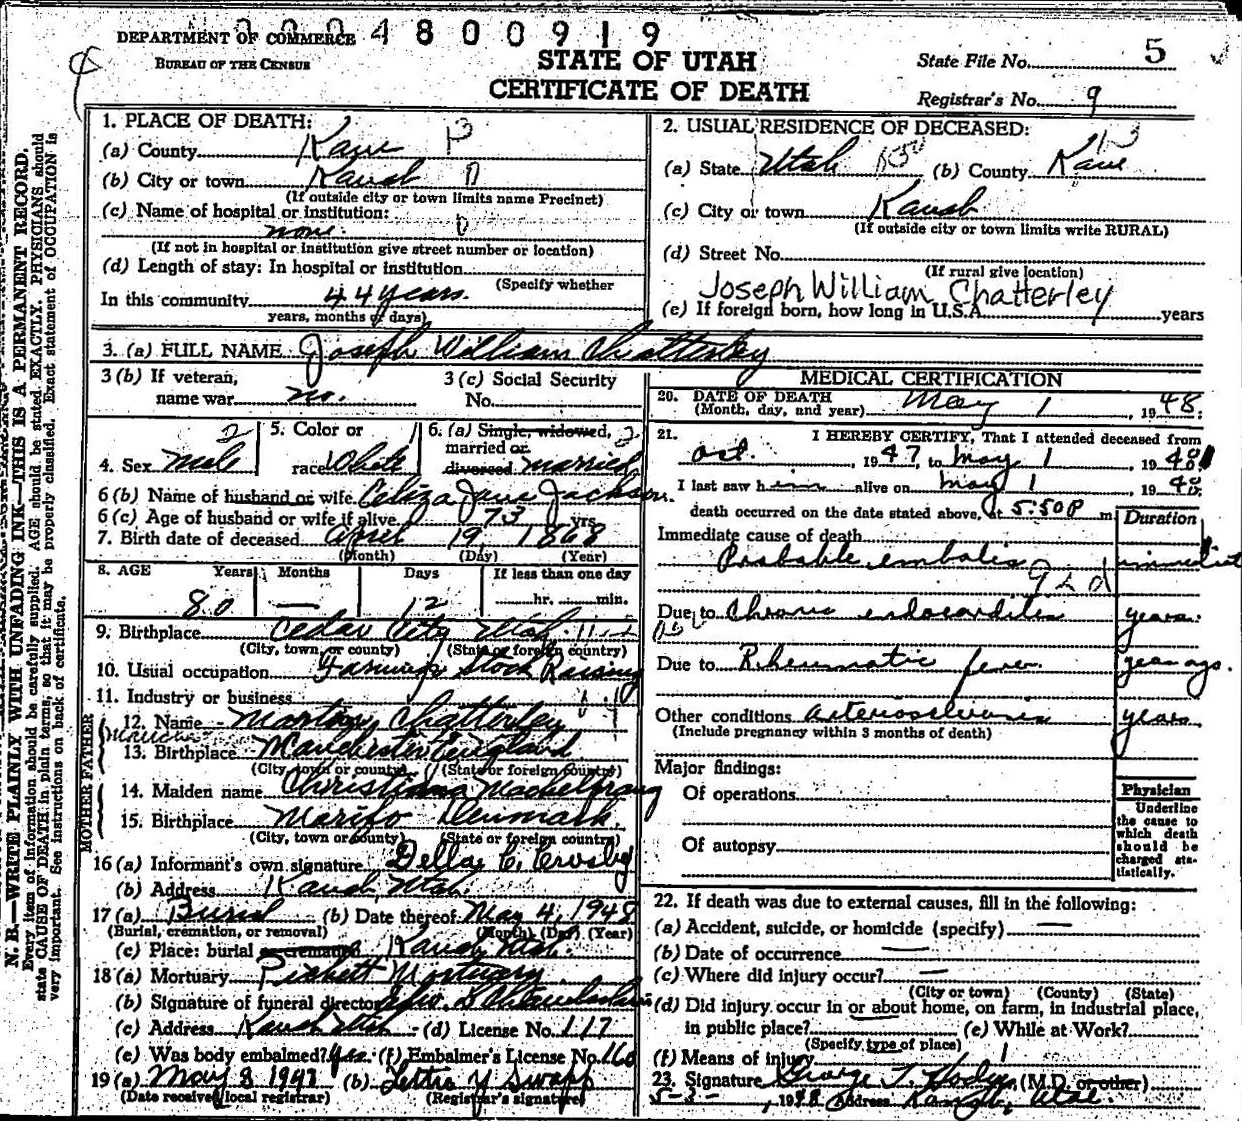 0 0 0 4 8 0 0 9 1 9
DEPARTMENT OF COMMERCE
BUREAU OF THE CENSUS
STATE OF UTAH
CERTIFICATE OF DEATH
State File No. 5
Registrar's No. 9
N. B.—WRITE PLAINLY WITH UNFADING INK—THIS IS A PERMANENT RECORD.
Every item of information should be carefully supplied. AGE should be stated EXACTLY. PHYSICIANS should
state CAUSE OF DEATH in plain terms, so that it may be properly classified. Exact statement of OCCUPATION is
very important. See instructions on back of certificate.
1. PLACE OF DEATH:
(a) County Kane
(b) City or town Kanab
(If outside city or town limits name Precinct)
(c) Name of hospital or institution:
none.
(If not in hospital or institution give street number or location)
(d) Length of stay: In hospital or institution
(Specify whether
In this community 44 years.
years, months or days)
2. USUAL RESIDENCE OF DECEASED:
(a) State Utah (b) County Kane
(c) City or town Kanab
(If outside city or town limits write RURAL)
(d) Street No.
(If rural give location)
Joseph William Chatterley
(e) If foreign born, how long in U.S.A. years
3. (a) FULL NAME Joseph William Chatterley
3 (b) If veteran,
name war no.
3 (c) Social Security
No.
4. Sex Male 2
5. Color or
race White
6. (a) Single, widowed, 2
married or
divorced married
6 (b) Name of husband or wife Celiza Jane Jackson.
6 (c) Age of husband or wife if alive 73 yrs.
7. Birth date of deceased April 19 1868
(Month) (Day) (Year)
8. AGE Years Months Days If less than one day
80 — 12 hr. min.
9. Birthplace Cedar City Utah
(City, town, or county) (State or foreign country)
10. Usual occupation Farming & Stock Raising
11. Industry or business
FATHER
12. Name Morton Chatterley
13. Birthplace Manchester England
(City, town or county) (State or foreign country)
MOTHER
14. Maiden name Christiana Mackelprang
15. Birthplace Maribo Denmark.
(City, town or county) (State or foreign country)
16 (a) Informant's own signature Della C. Crosby
(b) Address Kanab, Utah.
17 (a) Burial (b) Date thereof May 4, 1948
(Burial, cremation, or removal) (Month) (Day) (Year)
(c) Place: burial or cremation Kanab, Utah.
18 (a) Mortuary Mortuary
(b) Signature of funeral director
(c) Address Kanab Utah (d) License No. 117
(e) Was body embalmed? Yes. (f) Embalmer's License No. 160
19 (a) May 8 1947 (b) Lettie Y Swapp
(Date received local registrar) (Registrar's signature)
MEDICAL CERTIFICATION
20. DATE OF DEATH
(Month, day, and year) May 1, 1948.
21. I HEREBY CERTIFY, That I attended deceased from
Oct., 1947, to May 1, 1948
I last saw him alive on May 1, 1948
death occurred on the date stated above, at 5:50 P m
Duration
Immediate cause of death
Probable embolis immediat
92d
Due to Chronic endocarditis years.
Due to Rheumatic fever years ago.
Other conditions arteriosclerosis years
(Include pregnancy within 3 months of death)
Major findings:
Of operations
Of autopsy
Physician
Underline
the cause to
which death
should be
charged sta-
tistically.
22. If death was due to external causes, fill in the following:
(a) Accident, suicide, or homicide (specify) —
(b) Date of occurrence —
(c) Where did injury occur? —
(City or town) (County) (State)
(d) Did injury occur in or about home, on farm, in industrial place,
in public place? (e) While at Work?
(Specify type of place)
(f) Means of injury
23. Signature George T. (M.D. or other)
5-3-, 1948 Address Kanab, Utah.